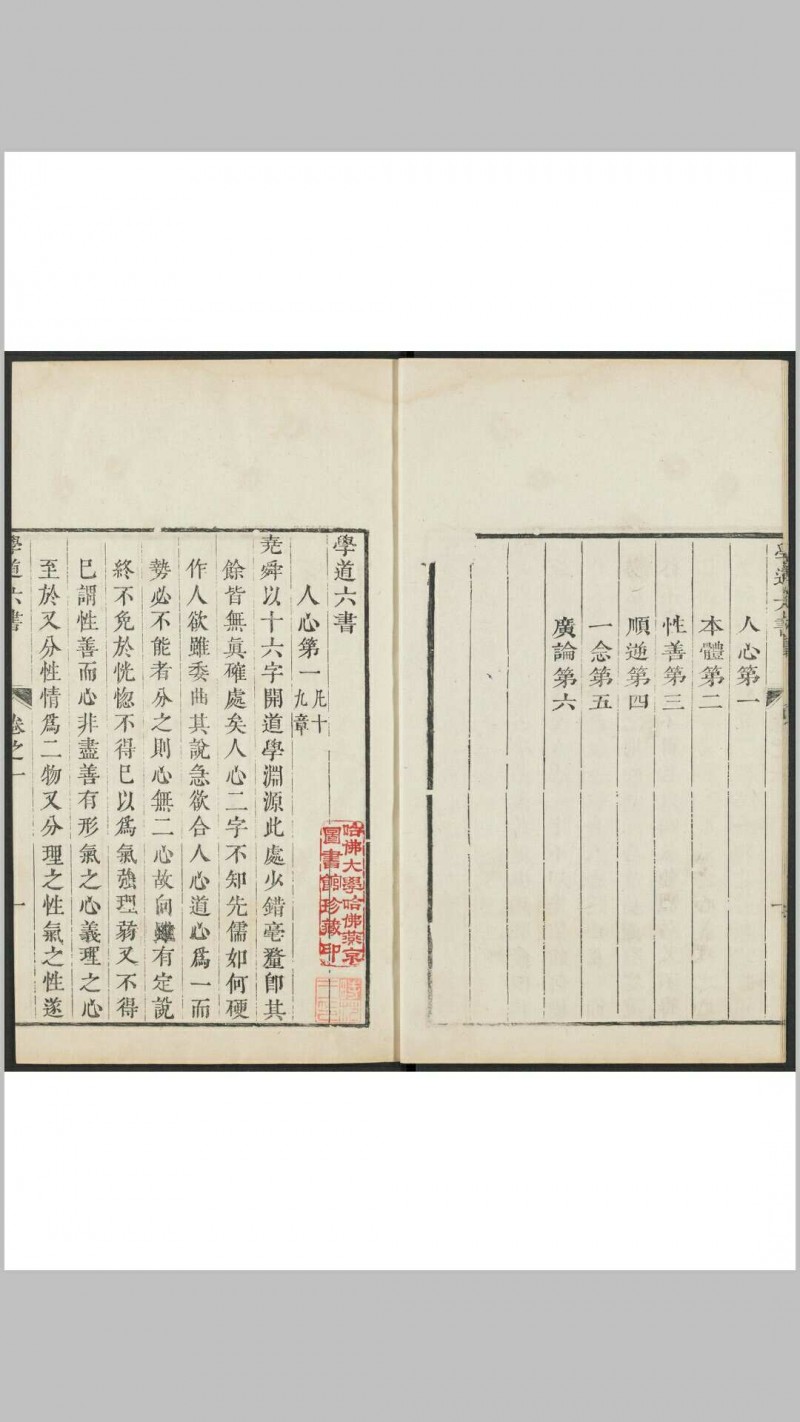 學道六書
人心第一
本體第二
性善第三
順逆第四
一念第五
廣論第六
學道六書
人心第一凡十九章
堯舜以十六字開道學淵源此處少錯亳釐卽其
餘皆無眞確處矣人心二字不知先儒如何硬
作人欲雖委曲其說急欲合人心道心爲一而
勢必不能者分之則心無二心故向雖有定說
終不免於恍惚不得已以爲氣強理弱又不得
已謂性善而心非盡善有形氣之心義理之心
至於又分性情爲二物又分理之性氣之性遂
學道六書 卷之一 一
哈佛大學哈佛燕京
圖書館珍藏印